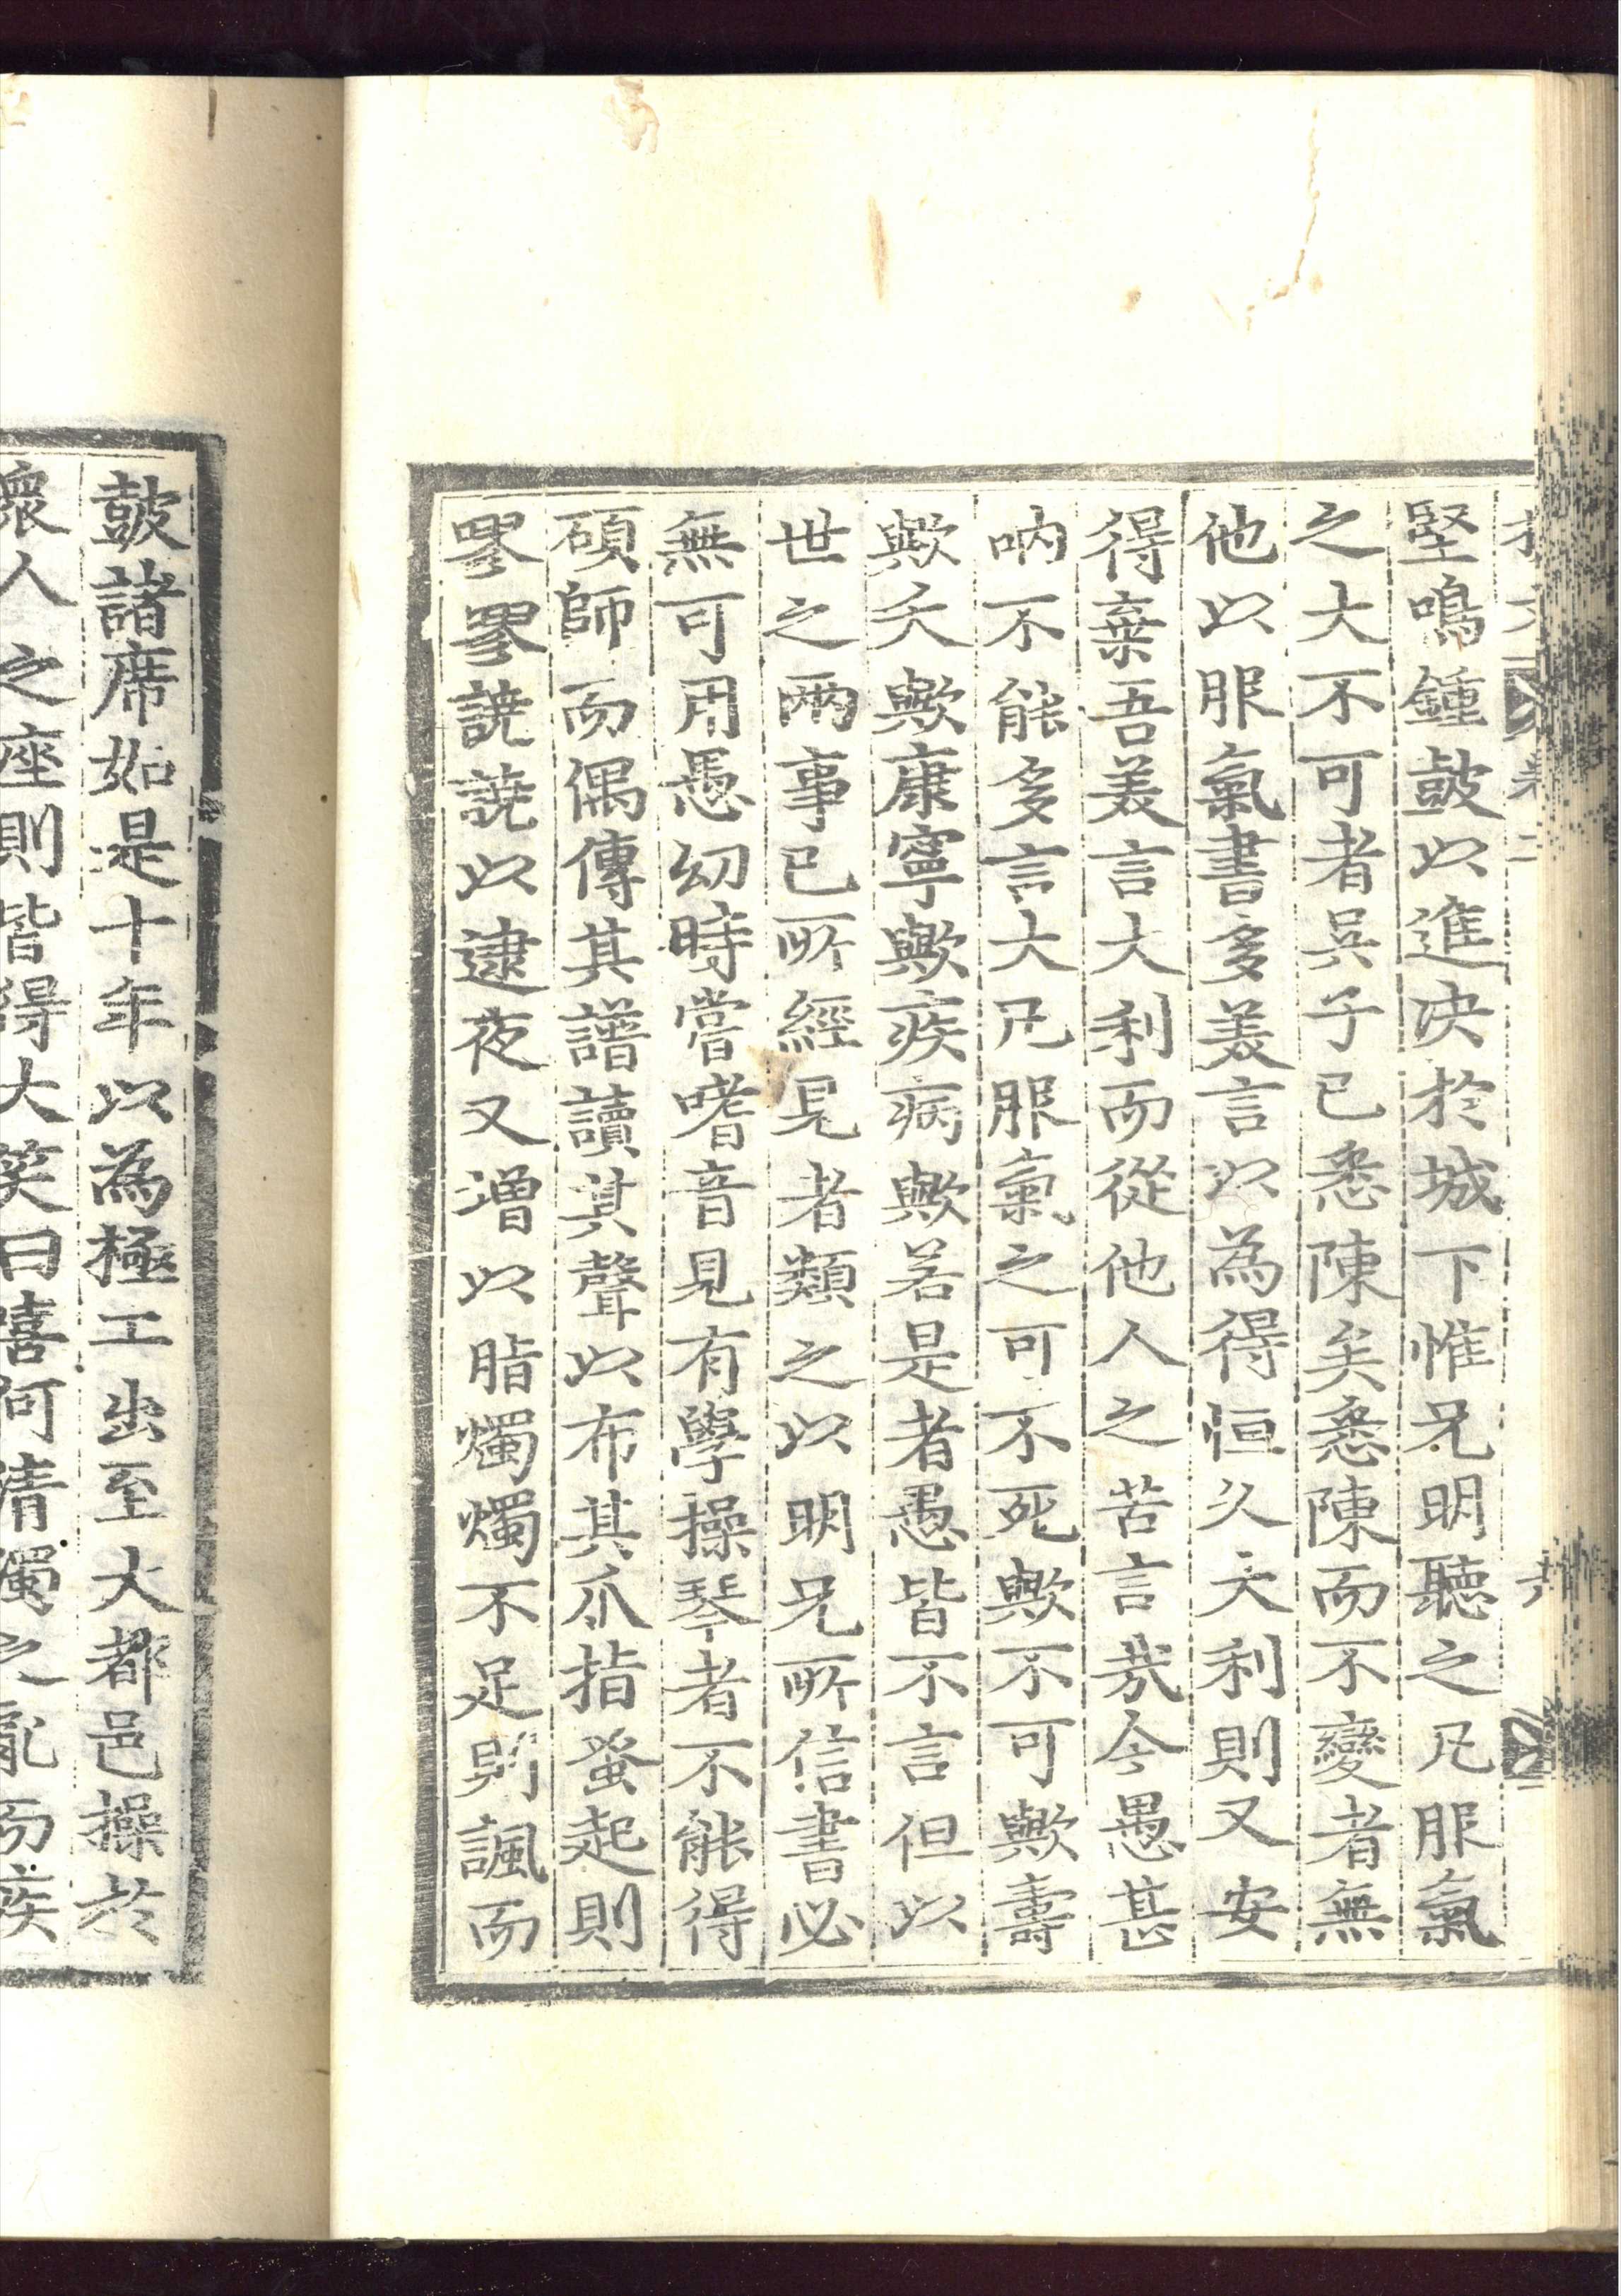 堅鳴鍾鼓以進決於城下惟兄明聽之凡服氣
之大不可者吾子已悉陳矣悉陳而不變者無
他以服氣書多美言以為得恒久大利則又安
得棄吾美言大利而從他人之苦言哉今愚甚
吶不能多言大凡服氣之可不死歟不可歟壽
歟夭歟康寧歟疾病歟若是者愚皆不言但以
世之兩事已所經見者類之以明兄所信書必
無可用愚幼時嘗嗜音見有學操琴者不能得
碩師而偶傳其譜讀其聲以布其爪指蚤起則
嘐嘐譊譊以逮夜又增以脂燭燭不足則諷而
鼓諸席如是十年以為極工出至大都邑操於
衆人之座則皆得大笑曰嘻何清濁之亂而疾